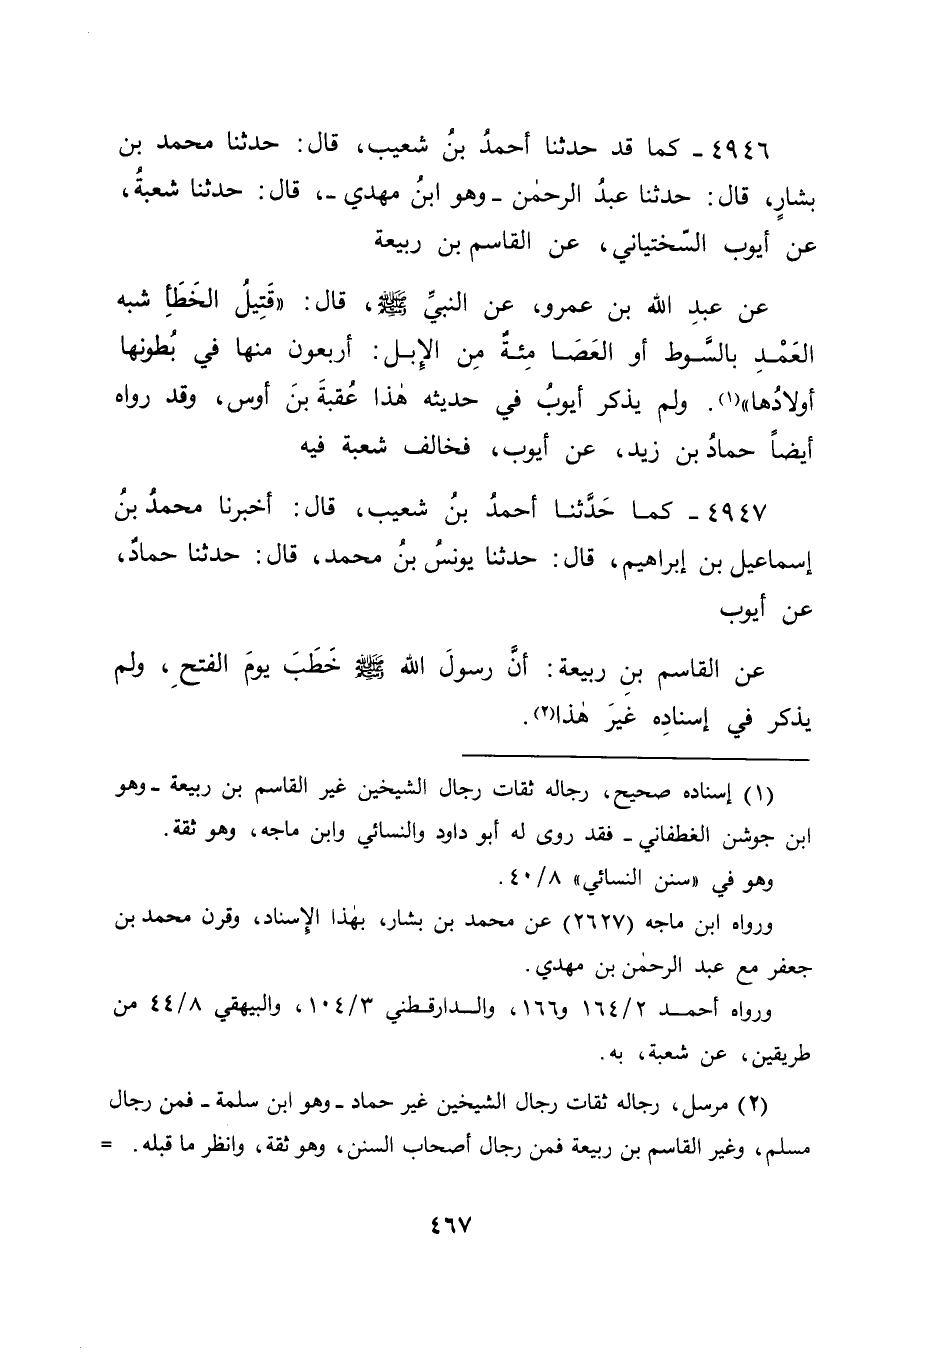 ٤٩٤٦ ـ كما قد حدثنا أحمدُ بنُ شعيب، قال: حدثنا محمد بن
بشارٍ، قال: حدثنا عبدُ الرحمٰن ـ وهو ابنُ مهدي ـ، قال: حدثنا شعبةُ،
عن أيوب السّختياني، عن القاسم بن ربيعة
عن عبدِ الله بن عمرو، عن النبيِّ ﷺ، قال: «قَتِيلُ الخَطَأِ شبه
العَمْدِ بالسَّوط أو العَصَا مِئةٌ مِن الإبل: أربعون منها في بُطونها
أولادُها»(١). ولم يذكر أيوبُ في حديثه هٰذا عُقبةَ بنَ أوس، وقد رواه
أيضاً حمادُ بن زيد، عن أيوب، فخالف شعبة فيه
٤٩٤٧ ـ كما حَدَّثنا أحمدُ بنُ شعيب، قال: أخبرنا محمدُ بنُ
إسماعيل بن إبراهيم، قال: حدثنا يونسُ بنُ محمد، قال: حدثنا حمادٌ،
عن أيوب
عن القاسم بنِ ربيعة: أنَّ رسولَ الله ﷺ خَطَبَ يومَ الفتحِ، ولم
يذكر في إسنادِه غيرَ هٰذا(٢).
(١) إسناده صحيح، رجاله ثقات رجال الشيخين غير القاسم بن ربيعة ـ وهو
ابن جوشن الغطفاني ـ فقد روى له أبو داود والنسائي وابن ماجه، وهو ثقة.
وهو في «سنن النسائي» ٤٠/٨.
ورواه ابن ماجه (٢٦٢٧) عن محمد بن بشار، بهٰذا الإسناد، وقرن محمد بن
جعفر مع عبد الرحمٰن بن مهدي.
ورواه أحمد ١٦٤/٢ و١٦٦، والدارقطني ١٠٤/٣، والبيهقي ٤٤/٨ من
طريقين، عن شعبة، به.
(٢) مرسل، رجاله ثقات رجال الشيخين غير حماد ـ وهو ابن سلمة ـ فمن رجال
مسلم، وغير القاسم بن ربيعة فمن رجال أصحاب السنن، وهو ثقة، وانظر ما قبله. =
٤٦٧